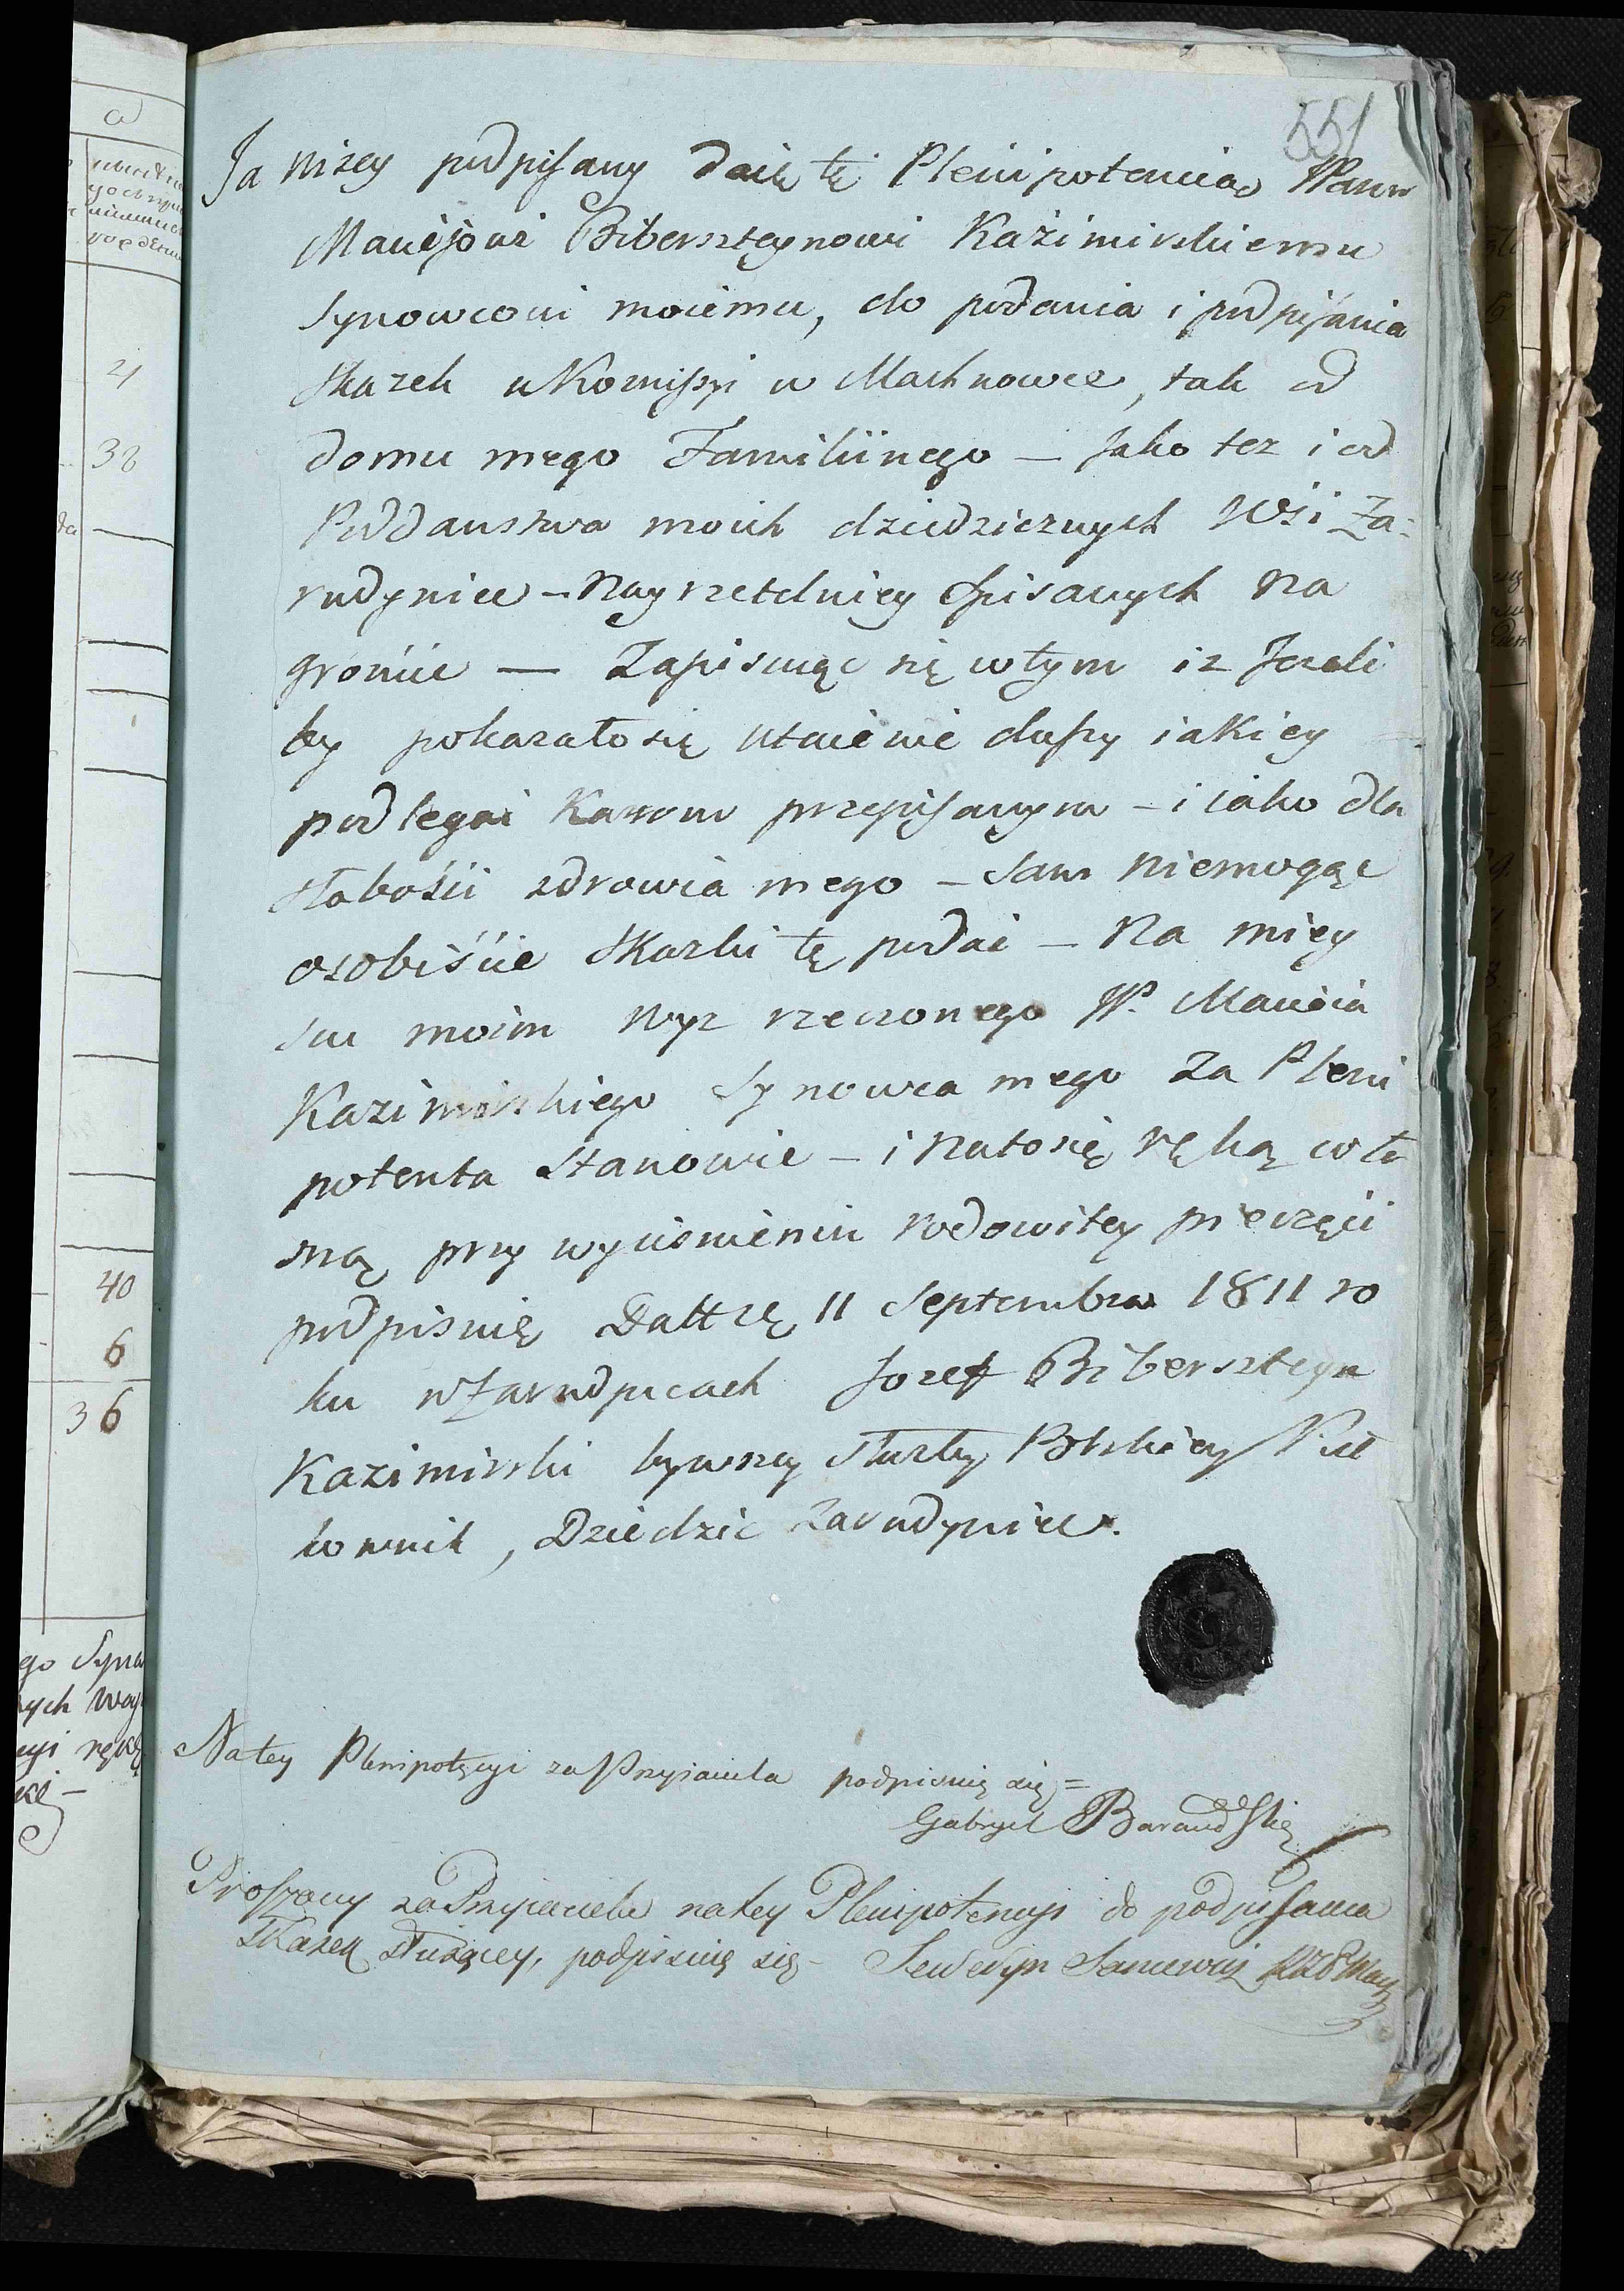 551
Ja niżey podpisany daię tę Plenipotencią WPanu
Maciejowi Biberszteynowi Kazimirskiemu
Synowcowi moiemu, do podania i podpisania
Skazek w Komissyi w Machnowce, tak od
domu mego Familiinego — Jako tez i od
Poddanstwa moich dziedzicznych Wśi Za:
rudyniec — Nayrzetelniey Spisanych na
gróńcie — Zapisuiąc się w tym iz Jezeli
by pokazało się utaienie duszy iakiey
podlegać Karom przepisanym — i iako dla
słabośći zdrowia mego — Sam niemogąc
osobiśćie Skazki tę podać — Na miey
scu moim wyz rzeczonego WP. Macieia
Kazimirskiego Synowca mego za Pleni
potenta Stanowie — i na to się ręką wła
sną przy wyciśnieniu rodowitey pieczęci
podpisuię Datt 11 Septembra 1811 ro
ku w Zarudyncach Jozef Biberszteyn
Kazimirski bywszy Służby Polskiey Puł
kownik, Dziedzic Zarudyniec.
Na tey Plenipotęcyi za Przyiaciela podpisuię się =
Gabryel
Proszony za Przyiaciela na tey Plenipotencyi do podpisania
Skazek Służącey, podpisuię się — Seweryn
21
38
40
6
36
go Syna
ych
eyi ręką